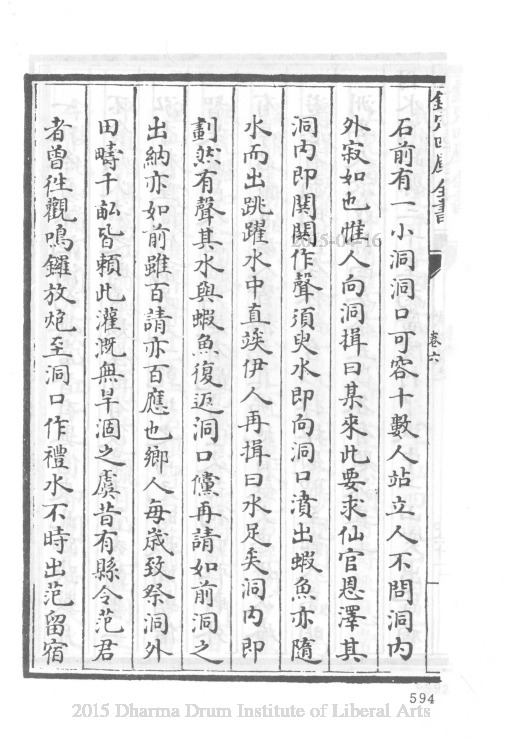 欽定四庫全書
卷六
石前有一小洞洞口可容十數人站立人不問洞内
外寂如也惟人向洞揖曰某來此要求仙官恩澤其
洞内即閧閧作聲須臾水即向洞口濆出蝦魚亦隨
水而出跳躍水中直竢伊人再揖曰水足矣洞内即
劃然有聲其水與蝦魚復返洞口儻再請如前洞之
出納亦如前雖百請亦百應也鄉人每歲致祭洞外
田疇千畝皆賴此灌溉無旱涸之虞昔有縣令范君
者曾徃觀鳴鑼放炮至洞口作禮水不時出范留宿
594
2015-04-16
2015 Dharma Drum Institute of Liberal Arts